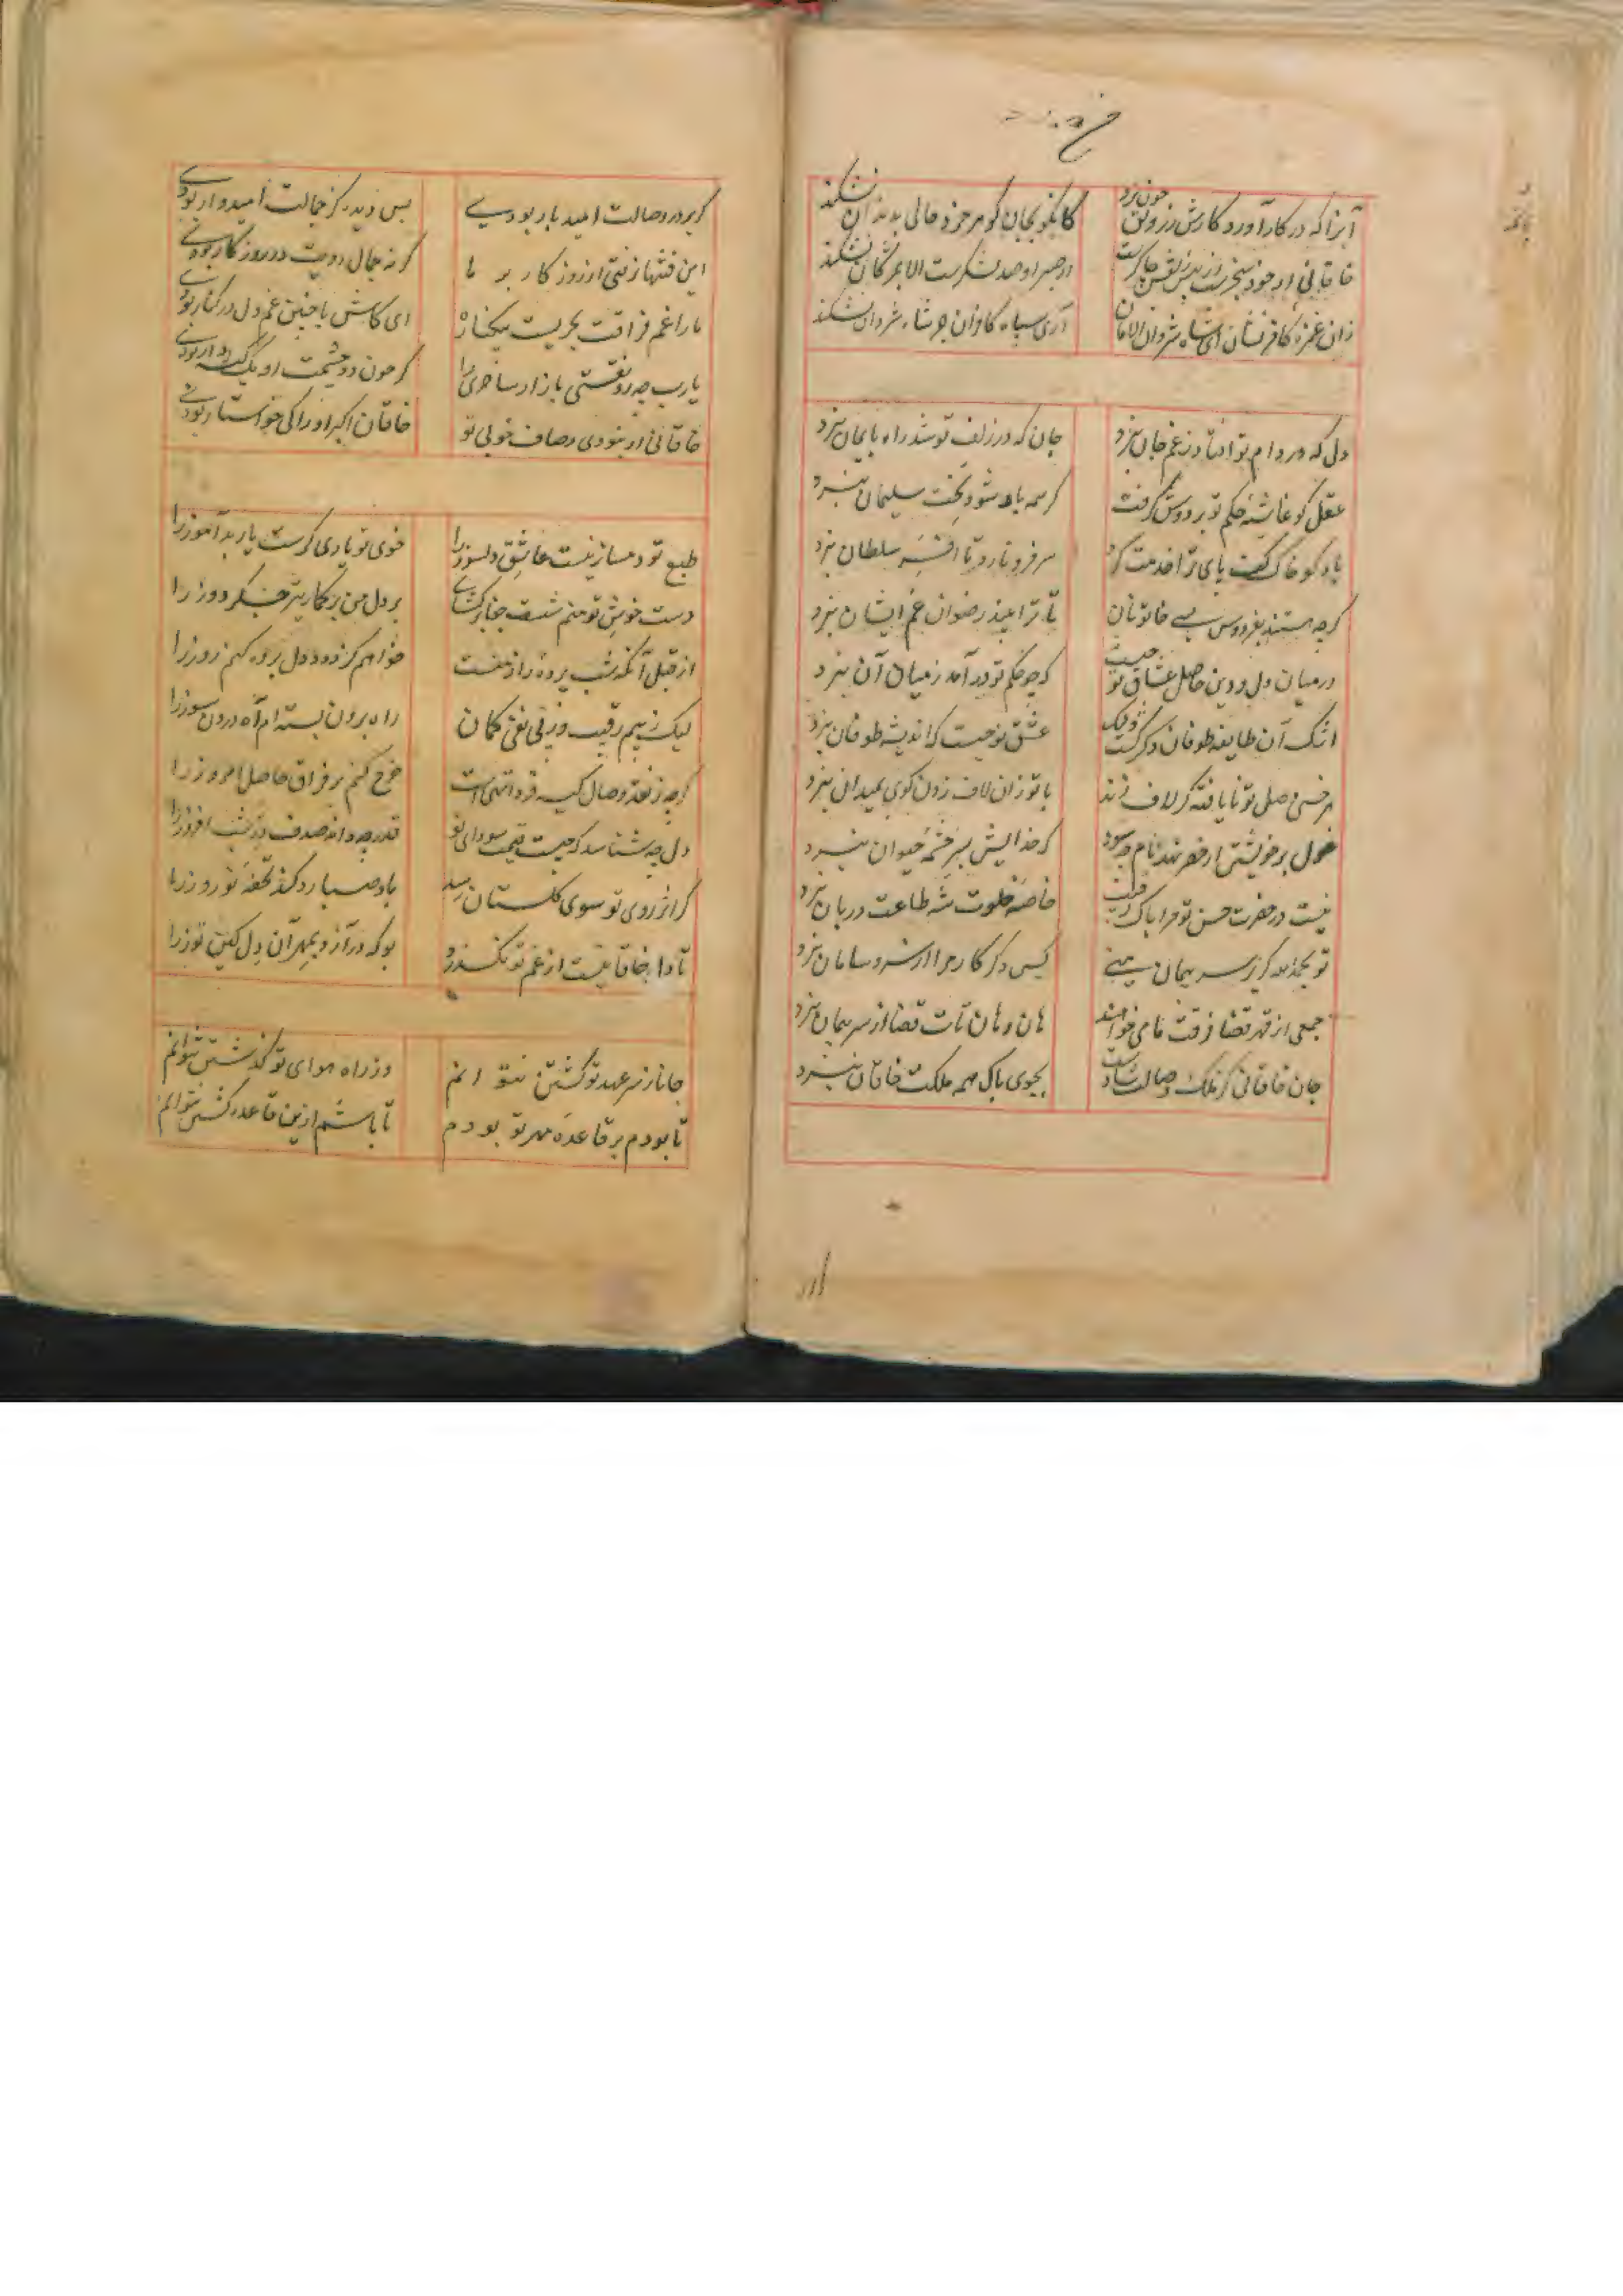 آنرا که در کار آورد کارش ز رونق چون برد
کانکو بجان گوهر خرد حالی بدندان نشکند
خاقانی ار خود سنجرست پیش زلفش چاکرست
در صبر او صد لشکرست الا بمژگان نشکند
زان غمزه کافر نشان ای شاه شروان الامان
آری سپاه کافران جز شاه شروان نشکند
دل که در دام تو افتاد ز غم جان نبرد
جان که در زلف تو شد راه بایمان نبرد
عقل کو غاشیه حکم تو بر دوش گرفت
گر همه باد شود تخت سلیمان نبرد
باد کو خاک کف پای ترا خدمت کرد
سر فرو نارد تا افسر سلطان نبرد
گرچه هستند بفردوس بسی خاتونان
تا ترا بیند رضوان غم ایشان نبرد
در میان دل و دین حاصل عشاق تو چیست
که چو حکم تو در آمد ز میان آن نبرد
اشک آن طایفه طوفان دگر گشت ولیک
عشق نوحیست که اندیشه طوفان نبرد
هر خسی وصل تو نا یافته گر لاف زند
با تو زان لاف زدن گوی بمیدان نبرد
غول بر خویشتن ار خضر نهد نام چه سود
که خدایش بسر چشمه حیوان نبرد
نیست در حضرت حسن تو مرا باک رقیب
خاصه خلوت شه طاعت دربان نبرد
تو بحمدالله گر بر سر پیمان منی
کس دگر کار مرا از سر و سامان نبرد
جمعی از قهر قضا فرقت ما می خواهند
هان و هان تات قضا از سر پیمان نبرد
جان خاقانی کز ملک وصالت شادست
بجوی باک همه ملکت خاقان نبرد
گر بر در وصالت امید بار بودی
بس دیده کز جمالت امیدوار بودی
این فتنها نرفتی از روزگار بر ما
گر نه جمال رویت در روزگار بودی
ما را غم فراقت بحریست بیکناره
ای کاش با چنین غم دل در کنار بودی
یارب چه رونقستی بازار ساحری را
گر چون دو چشمت او یک
خاقانی ار نبودی وصاف خوبی تو
خاقان اکبر او را کی خواستار بودی
طبع تو دمساز نیست عاشق دلسوز را
خوی تو یاری گرست یار بد آموز را
دست خوش تو منم دست جفا برگشای
بر دل من برگمار تیر جگر دوز را
از قبل آنکه شب پرده راز منست
خواهم کز دود دل پرده کنم روز را
لیک ز بیم رقیب وز پی نفی گمان
راه برون بسته ام آه درون سوز را
گرچه ز نقد وصال کیسه فرو تهی است
خرج کنم بر فراق حاصل امروز را
دل چه شناسد که چیست قیمت سودای تو
قدر چه داند صدف در شب افروز را
گر اثر روی تو سوی گلستان رسد
باد صبا رد کند تحفه نوروز را
تا دل خاقانیست از غم تو نگذرد
بو که درآرد بمهر آن دل کین توز را
جانا ز سر عهد تو گشتن نتوانم
وز راه هوای تو گذشتن نتوانم
تا بودم بر قاعده مهر تو بودم
تا باشم ازین قاعده گشتن نتوانم